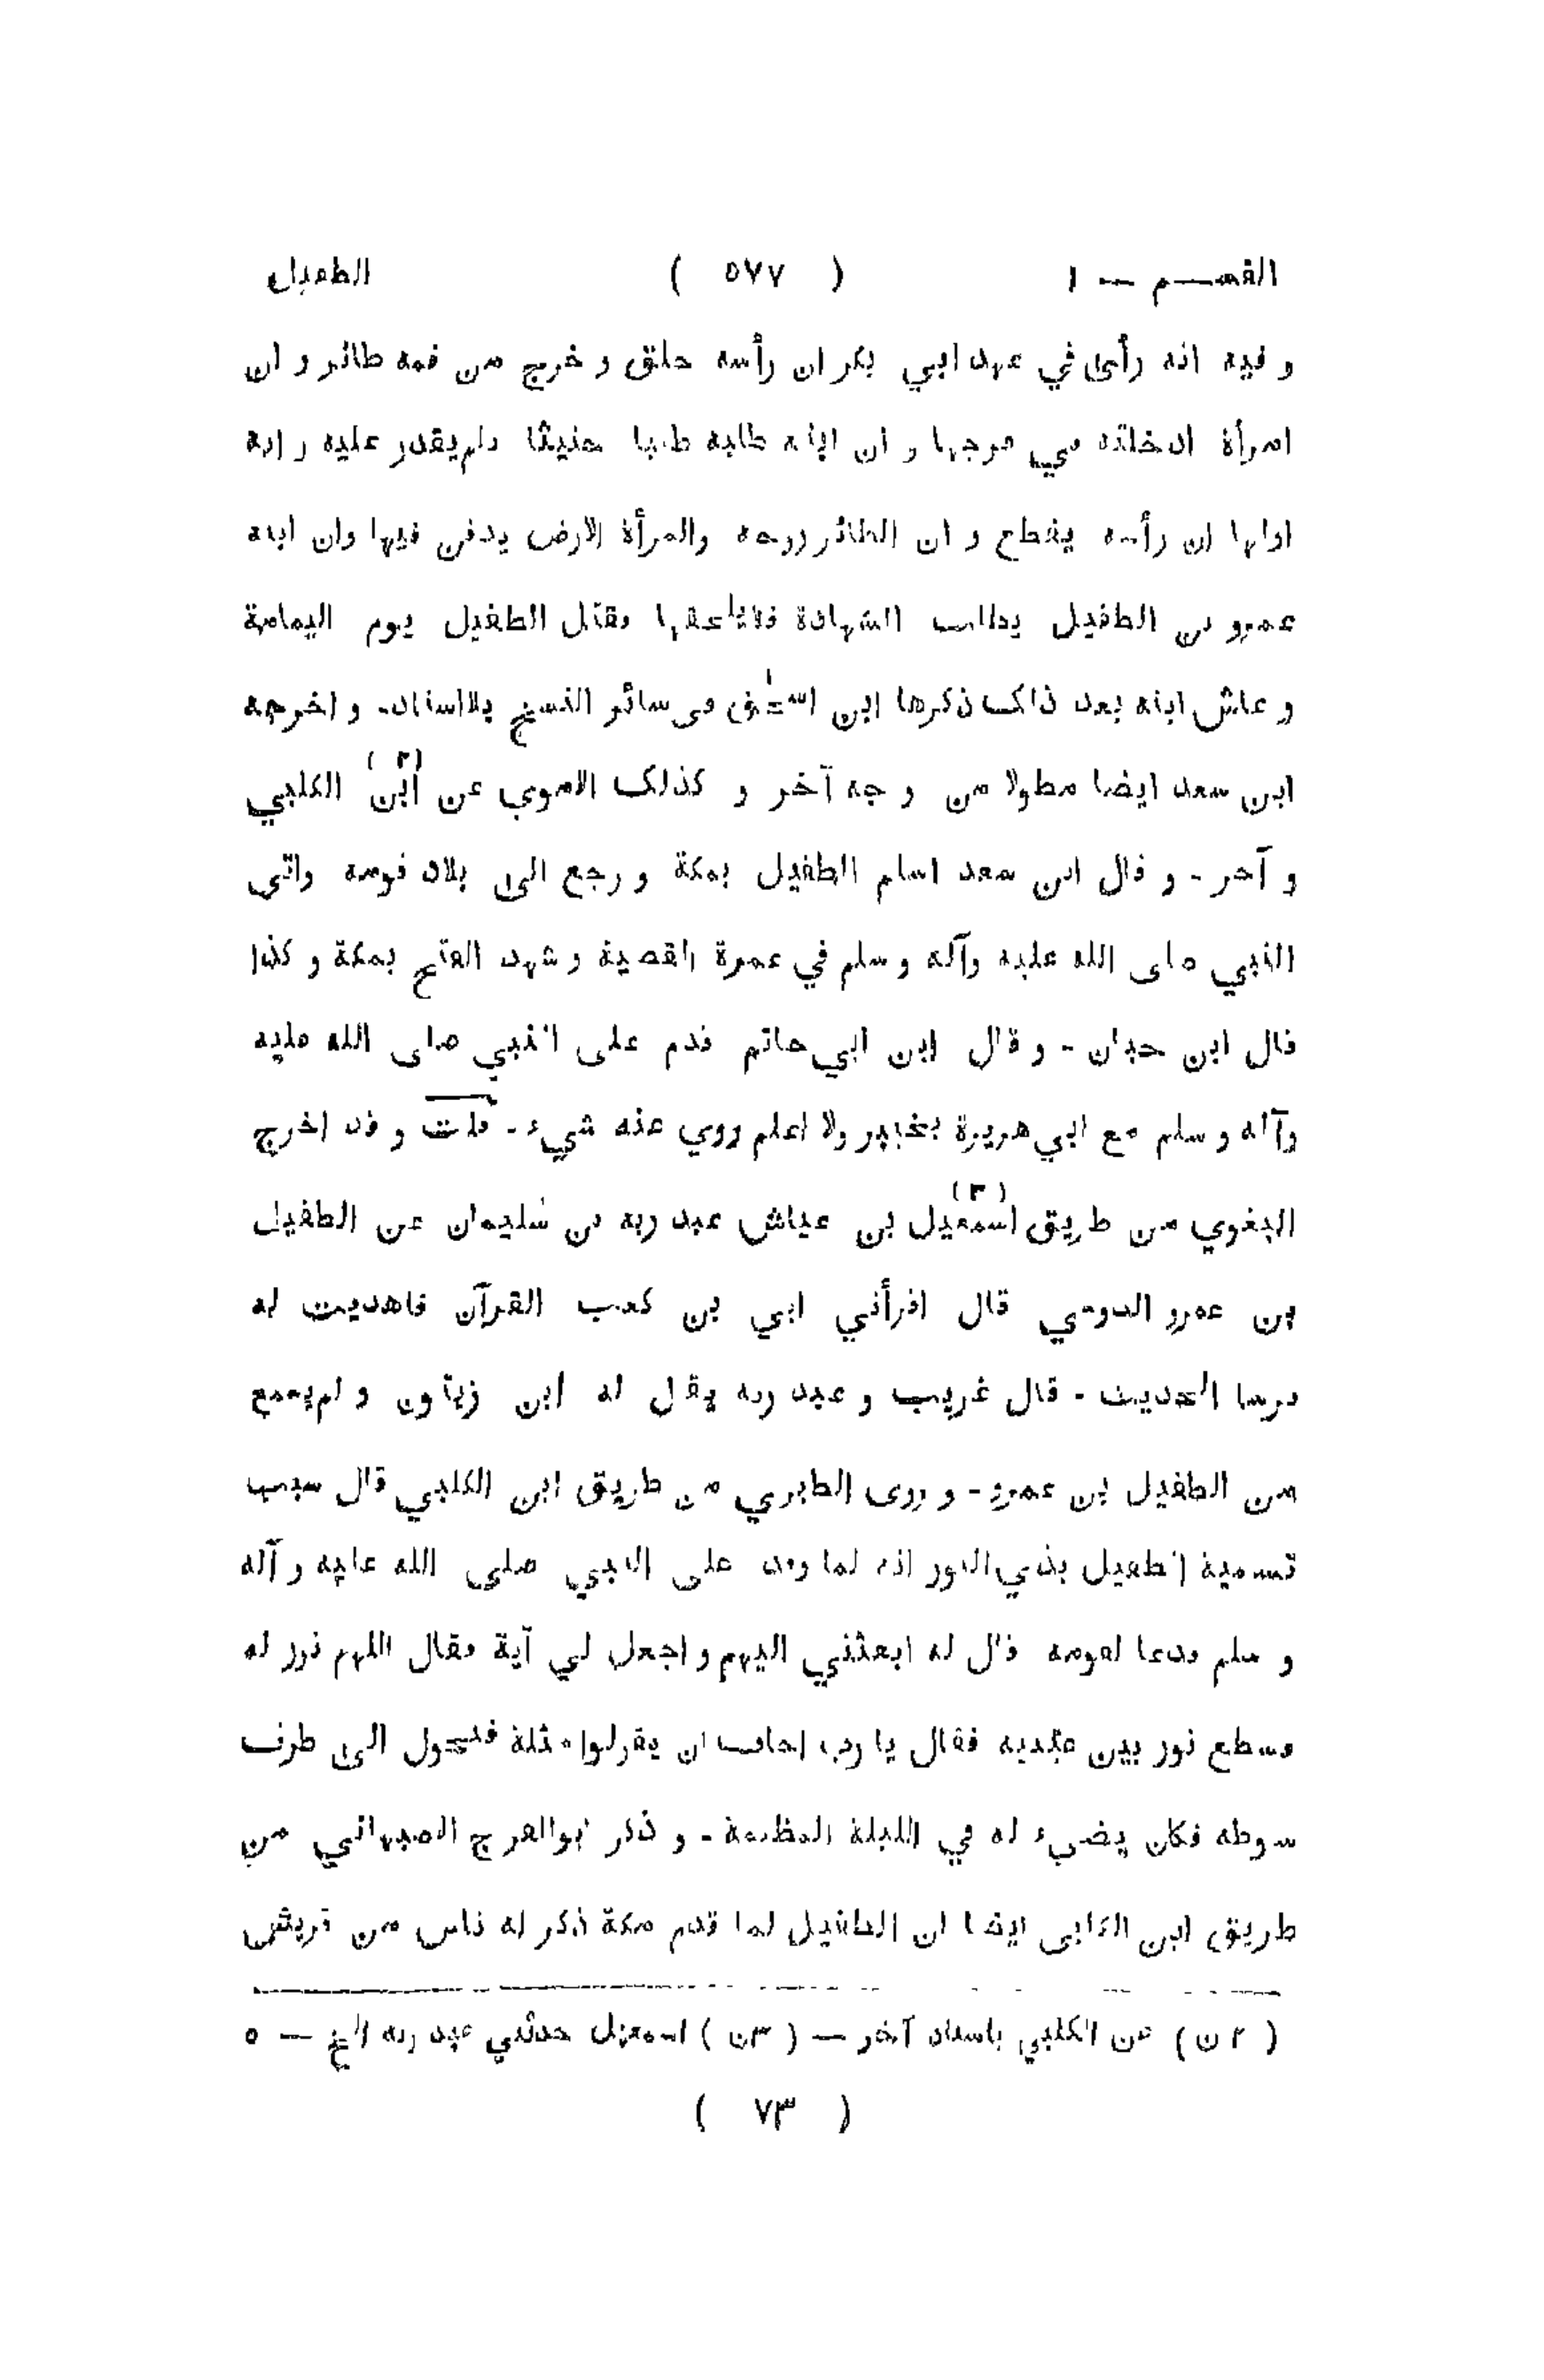 القسم — ١ ( ٥٧٧ ) الطفيل
و فيه انه رأى في عهد ابي بكر ان رأسه حلق و خرج من فمه طائر و ان
امرأة ادخلته في فرجها و ان ابنه طلبه طلبا حثيثا فلم يقدر عليه و انه
اولها ان رأسه يقطع و ان الطائر روحه والمرأة الارض يدفن فيها وان ابنه
عمرو بن الطفيل يطلب الشهادة فلا يلحقها فقتل الطفيل يوم اليمامة
و عاش ابنه بعد ذلك ذكرها ابن اسحٰق في سائر النسخ بلا اسناد - و اخرجه
ابن سعد ايضا مطولا من وجه آخر و كذلك الاموي عن ابن (٢) الكلبي
و آخر - و قال ابن سعد اسلم الطفيل بمكة و رجع الى بلاد قومه واتى
النبي صلى الله عليه وآله و سلم في عمرة القضية و شهد الفتح بمكة و كذا
قال ابن حبان - و قال ابن ابي حاتم قدم على النبي صلى الله عليه
وآله و سلم مع ابي هريرة بخيبر ولا اعلم روي عنه شيء - قلت و قد اخرج
البغوي من طريق اسمعيل (٣) بن عياش عبد ربه بن سليمان عن الطفيل
بن عمرو الدوسي قال اقرأني ابي بن كعب القرآن فاهديت له
فرسا الحديث - قال غريب و عبد ربه يقال له ابن زيتون و لم يسمع
من الطفيل بن عمرو - و روى الطبري من طريق ابن الكلبي قال سبب
تسمية الطفيل بذي النور انه لما وفد على النبي صلى الله عليه و آله
و سلم فدعا لقومه قال له ابعثني اليهم و اجعل لي آية فقال اللهم نور له
فسطع نور بين عينيه فقال يا رب اخاف ان يقولوا مثلة فتحول الى طرف
سوطه فكان يضيء له في الليلة المظلمة - و ذكر ابوالفرج الاصبهاني من
طريق ابن الكلبي ايضا ان الطفيل لما قدم مكة ذكر له ناس من قريش
( ٢ ن ) عن الكلبي باسناد آخر — ( ٣ ن ) اسمعيل حدثني عبد ربه الخ — ٥
( ٧٣ )